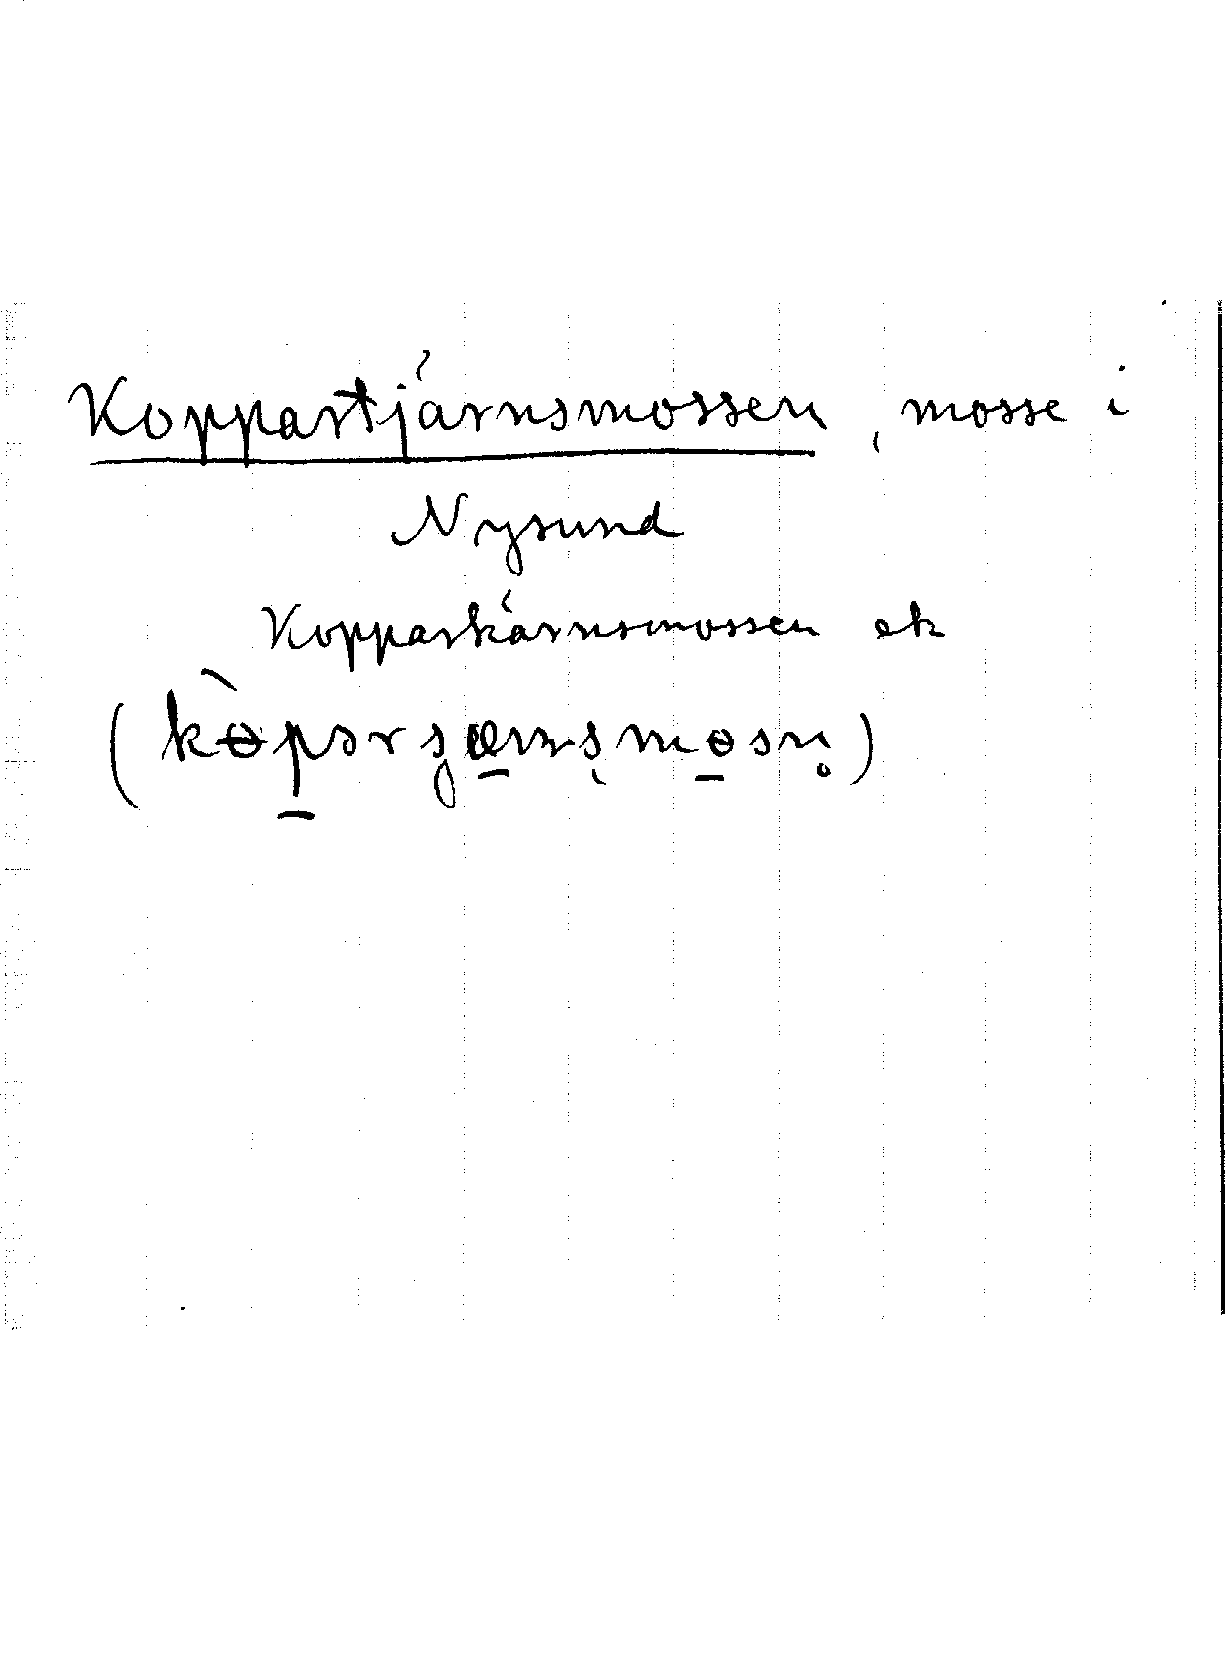 Koppartjärnsmossen, mosse i
Nysund
Kopparkärnsmossen ek